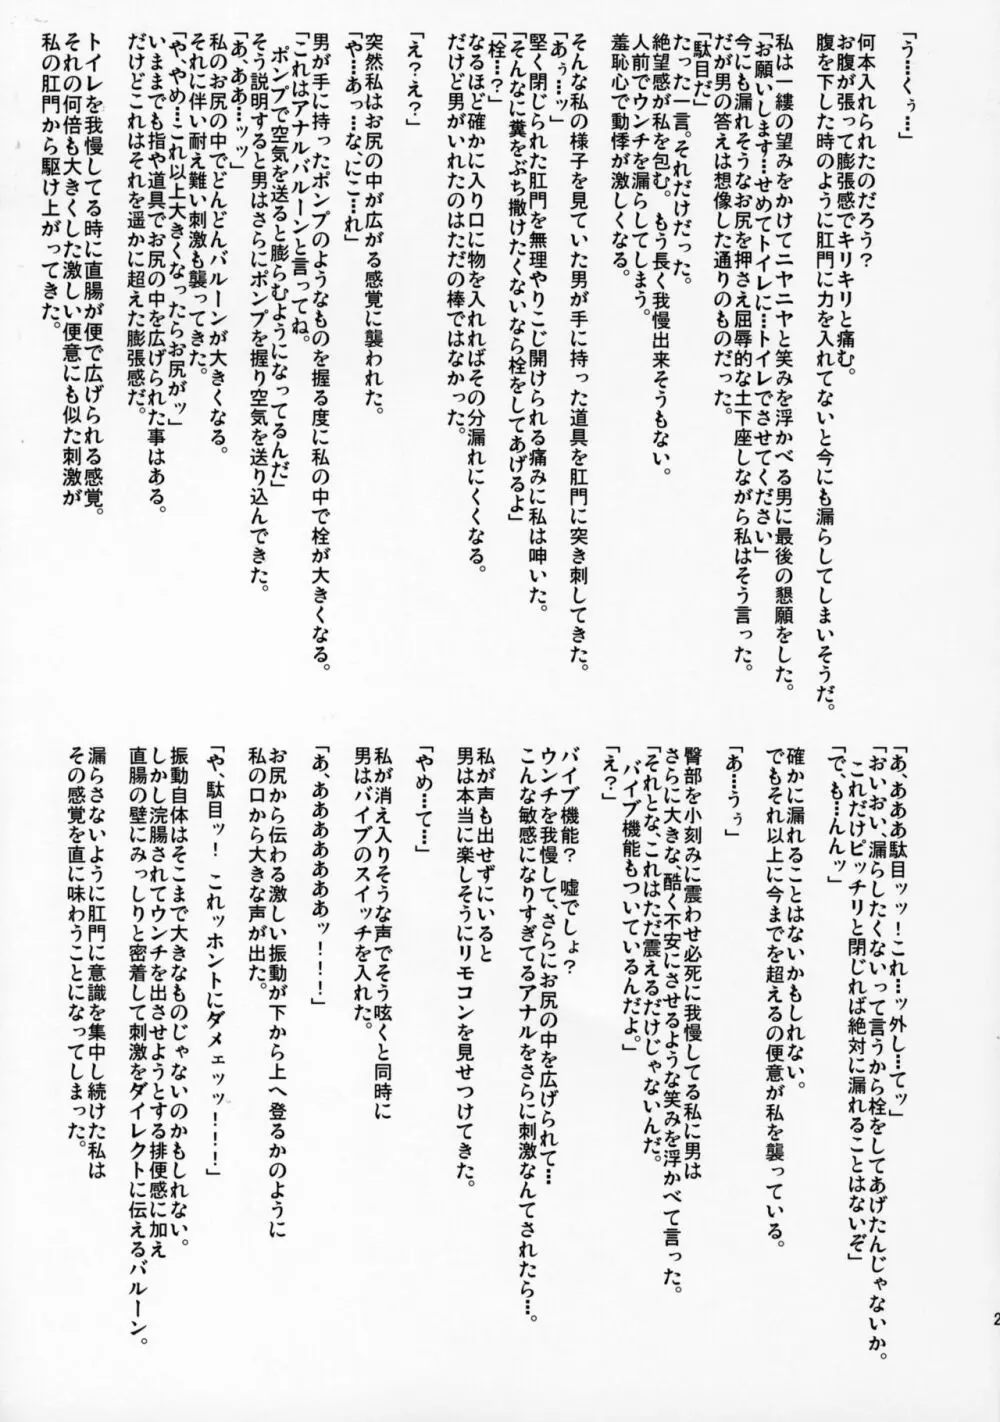 「う…くぅ…」
何本入れられたのだろう？
お腹が張って膨張感でキリキリと痛む。
腹を下した時のように肛門に力を入れてないと今にも漏らしてしまいそうだ。
私は一縷の望みをかけてニヤニヤと笑みを浮かべる男に最後の懇願をした。
「お願いします…せめてトイレに…トイレでさせてください」
今にも漏れそうなお尻を押さえ屈辱的な土下座しながら私はそう言った。
だが男の答えは想像した通りのものだった。
「駄目だ」
たった一言。それだけだった。
絶望感が私を包む。もう長く我慢出来そうもない。
人前でウンチを漏らしてしまう。
羞恥心で動悸が激しくなる。
そんな私の様子を見ていた男が手に持った道具を肛門に突き刺してきた。
「あぅ…ッ」
堅く閉じられた肛門を無理やりこじ開けられる痛みに私は呻いた。
「そんなに糞をぶち撒けたくないなら栓をしてあげるよ」
「栓…？」
なるほど確かに入り口に物を入れればその分漏れにくくなる。
だけど男がいれたのはただの棒ではなかった。
「え？え？」
突然私はお尻の中が広がる感覚に襲われた。
「や…あっ…な、にこ…れ」
男が手に持ったポンプのようなものを握る度に私の中で栓が大きくなる。
「これはアナルバルーンと言ってね。
ポンプで空気を送ると膨らむようになってるんだ」
そう説明すると男はさらにポンプを握り空気を送り込んできた。
「あ、ああ…ッッ」
私のお尻の中でどんどんバルーンが大きくなる。
それに伴い耐え難い刺激も襲ってきた。
「や、やめ…これ以上大きくなったらお尻がッ」
いままでも指や道具でお尻の中を広げられた事はある。
だけどこれはそれを遥かに超えた膨張感だ。
トイレを我慢してる時に直腸が便で広げられる感覚。
それの何倍も大きくした激しい便意にも似た刺激が
私の肛門から駆け上がってきた。
「あ、あああ駄目ッッ！これ…ッ外し…てッ」
「おいおい、漏らしたくないって言うから栓をしてあげたんじゃないか。
これだけピッチリと閉じれば絶対に漏れることはないぞ」
「で、も…んんッ」
確かに漏れることはないかもしれない。
でもそれ以上に今までを超えるの便意が私を襲っている。
「あ…うぅ」
臀部を小刻みに震わせ必死に我慢してる私に男は
さらに大きな、酷く不安にさせるような笑みを浮かべて言った。
「それとな、これはただ震えるだけじゃないんだ。
バイブ機能もついているんだよ。」
「え？」
バイブ機能？　嘘でしょ？
ウンチを我慢して、さらにお尻の中を広げられて…
こんな敏感になりすぎてるアナルをさらに刺激なんてされたら…。
私が声も出せずにいると
男は本当に楽しそうにリモコンを見せつけてきた。
「やめ…て…」
私が消え入りそうな声でそう呟くと同時に
男はバイブのスイッチを入れた。
「あ、ああああああぁッ！！！」
お尻から伝わる激しい振動が下から上へ登るかのように
私の口から大きな声が出た。
「や、駄目ッ！　これッホントにダメェッッ！！！」
振動自体はそこまで大きなものじゃないのかもしれない。
しかし浣腸されてウンチを出させようとする排便感に加え
直腸の壁にみっしりと密着して刺激をダイレクトに伝えるバルーン。
漏らさないように肛門に意識を集中し続けた私は
その感覚を直に味わうことになってしまった。
2